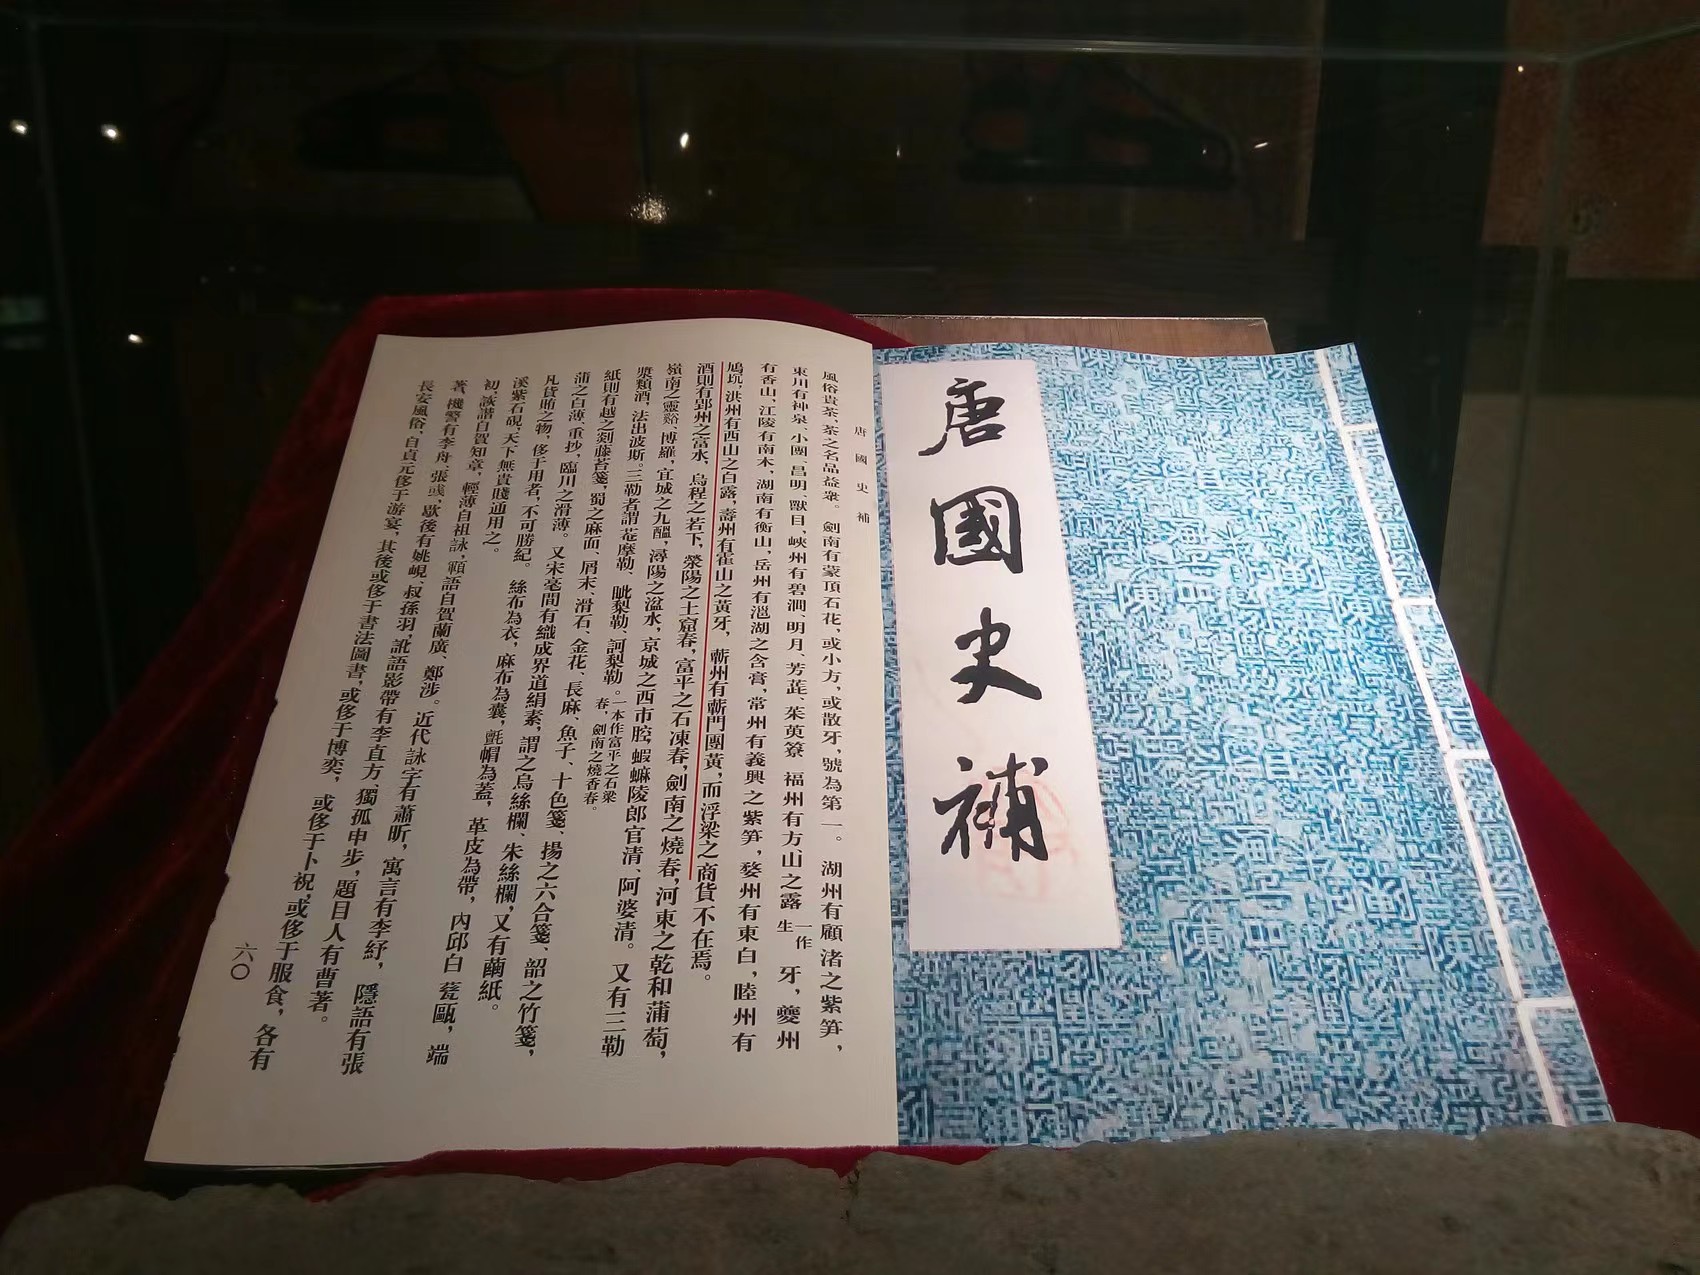 唐國史補
唐國史補
風俗貴茶，茶之名品益衆。劍南有蒙頂石花，或小方，或散牙，號為第一。湖州有顧渚之紫笋，
東川有神泉、小團、昌明、獸目，峽州有碧澗、明月、芳蕋、茱萸簝，福州有方山之露一作生牙，夔州
有香山，江陵有南木，湖南有衡山，岳州有㴩湖之含膏，常州有義興之紫笋，婺州有東白，睦州有
鳩坑，洪州有西山之白露，壽州有霍山之黃牙，蘄州有蘄門團黃，而浮梁之商貨不在焉。
酒則有郢州之富水，烏程之若下，滎陽之土窟春，富平之石凍春，劍南之燒春，河東之乾和蒲萄，
嶺南之靈谿、博羅，宜城之九醞，潯陽之湓水，京城之西市腔，蝦䗫陵郎官清、阿婆清。又有三勒
漿類酒，法出波斯。三勒者謂菴摩勒、毗梨勒、訶梨勒。一本作富平之石梁春，劍南之燒香春。
紙則有越之剡藤苔箋，蜀之麻面、屑末、滑石、金花、長麻、魚子、十色箋，揚之六合箋，韶之竹箋，
蒲之白薄、重抄，臨川之滑薄。又宋亳間有織成界道絹素，謂之烏絲欄、朱絲欄，又有繭紙。
凡貨賄之物，侈于用者，不可勝紀。絲布為衣，麻布為囊，氈帽為蓋，革皮為帶，內邱白甆甌，端
溪紫石硯，天下無貴賤通用之。
初，詼諧自賀知章，輕薄自祖詠，顐語自賀蘭廣、鄭涉。近代詠字有蕭昕，寓言有李紓，隱語有張
著，機警有李舟、張彧，歇後有姚峴、叔孫羽，訛語影帶有李直方、獨孤申步，題目人有曹著。
長安風俗，自貞元侈于游宴，其後或侈于書法圖畫，或侈于博奕，或侈于卜祝，或侈于服食，各有
六〇